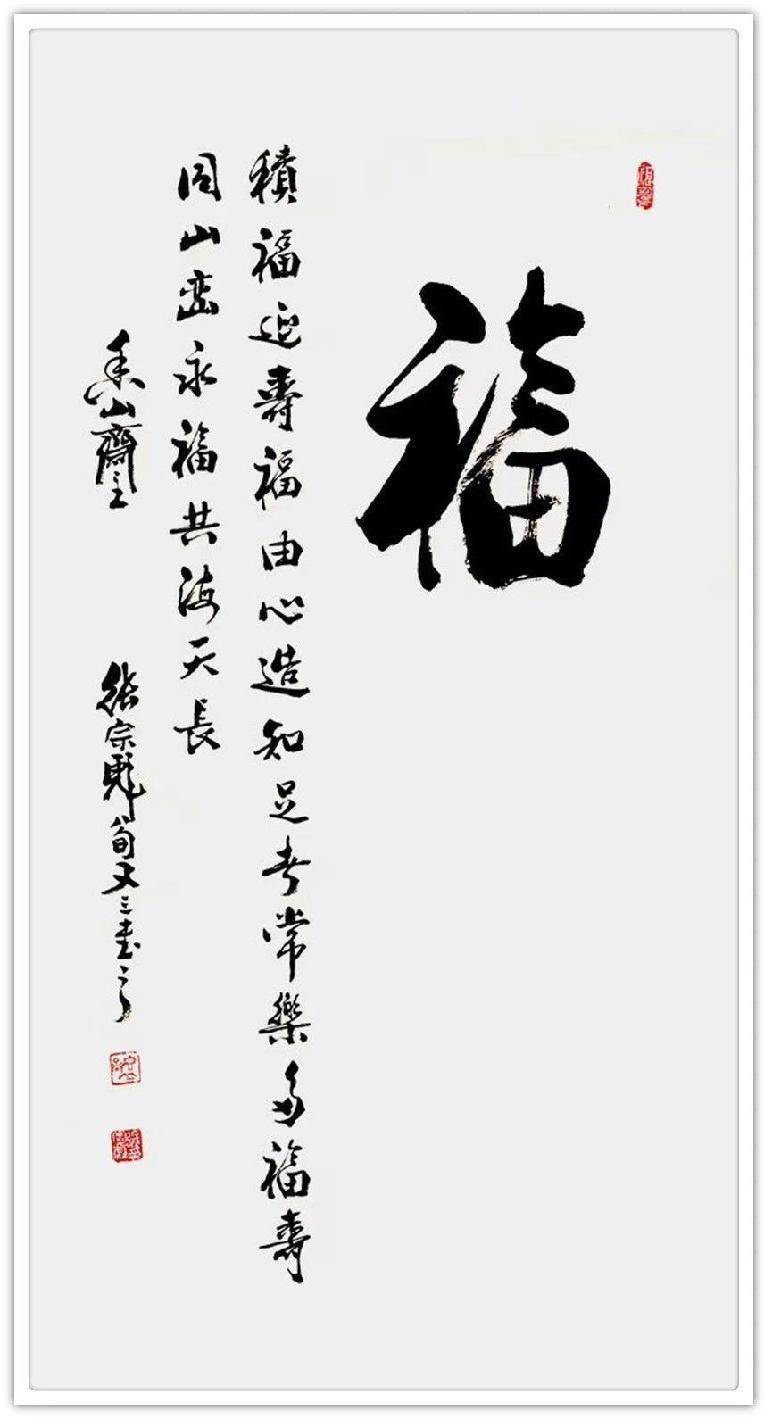 福
積福迎壽福由心造知足者常樂多福壽
同山峦永福共海天長
香山齋主
張宗彪